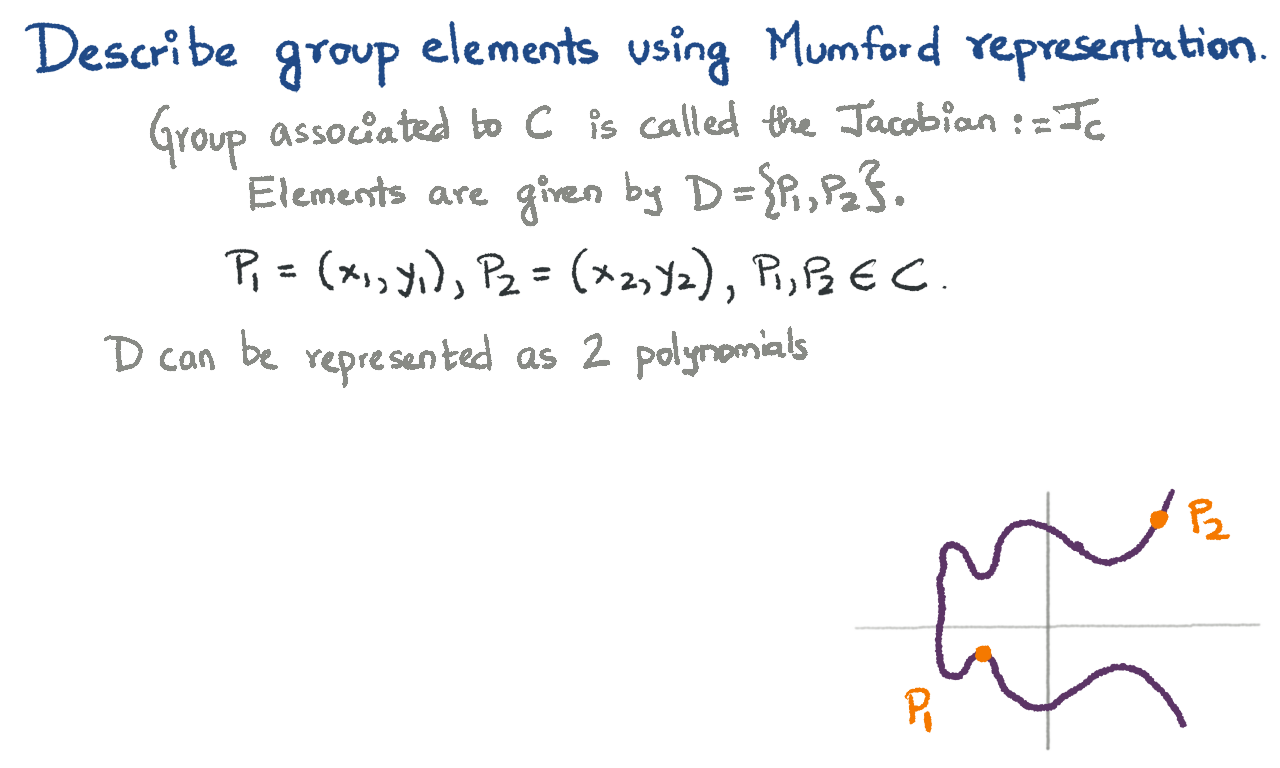 Describe group elements using Mumford representation.
Group associated to C is called the Jacobian := J_C
Elements are given by D = {P₁, P₂}.
P₁ = (x₁, y₁), P₂ = (x₂, y₂), P₁, P₂ ∈ C.
D can be represented as 2 polynomials
P₂
P₁